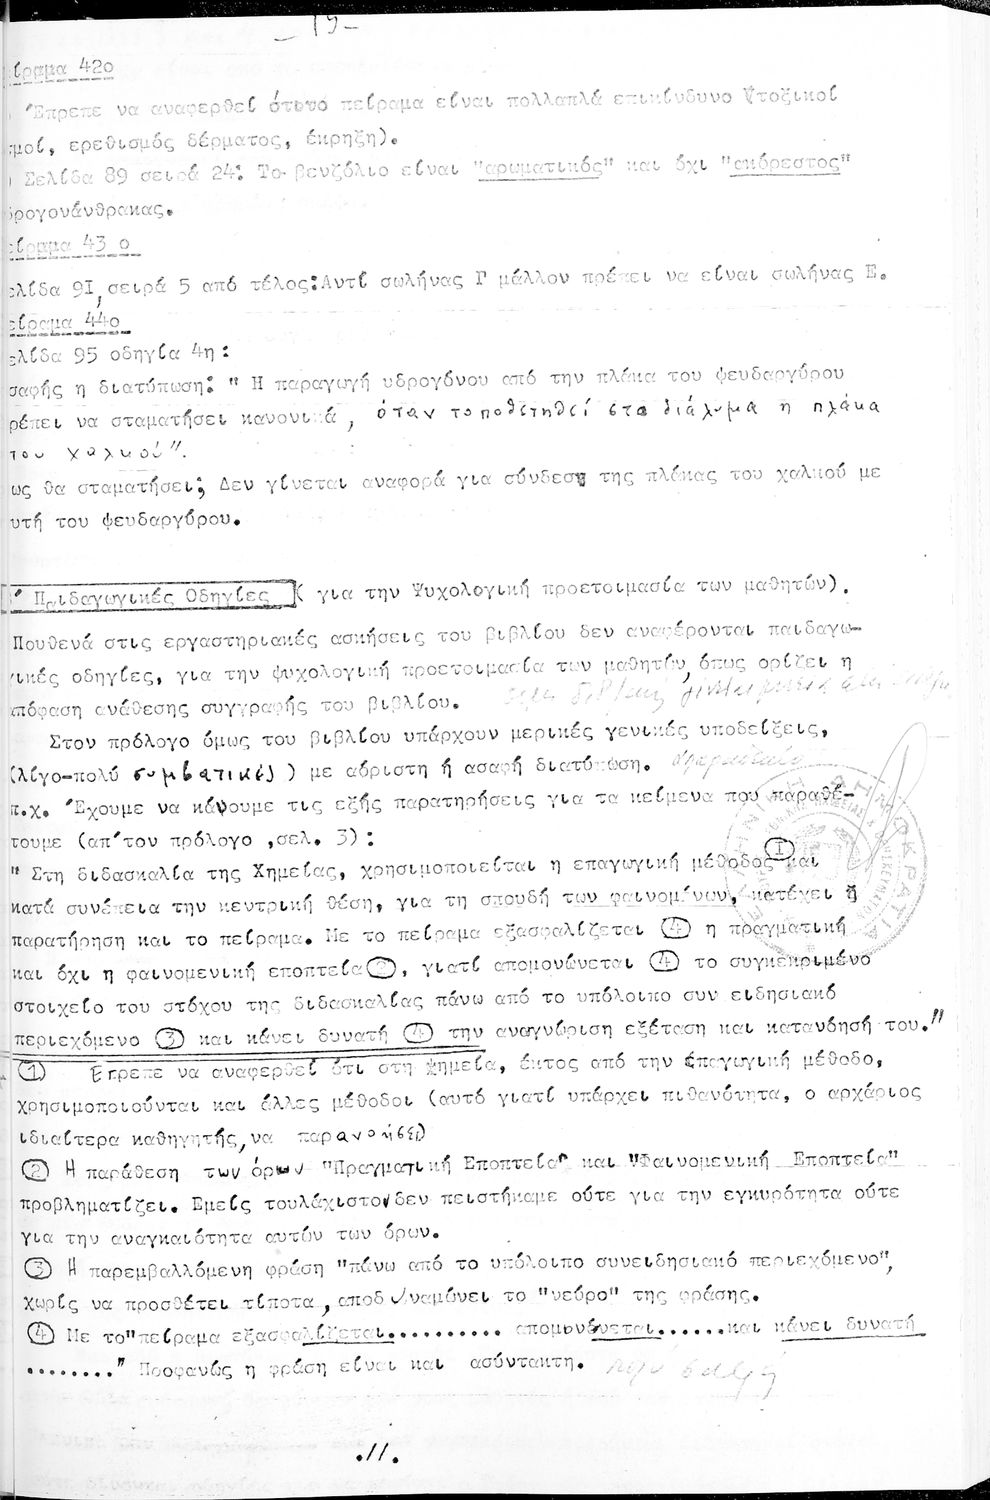 - 19 -
είραμα 42ο
Έπρεπε να αναφερθεί ότι το πείραμα είναι πολλαπλά επικίνδυνο (τοξικοί
σμοί, ερεθισμός δέρματος, έκρηξη).
) Σελίδα 89 σειρά 24: Το βενζόλιο είναι "αρωματικός" και όχι "ακόρεστος"
δρογονάνθρακας.
είραμα 43 ο
ελίδα 91, σειρά 5 από τέλος: Αντί σωλήνας Γ μάλλον πρέπει να είναι σωλήνας Ε.
είραμα 44ο
ελίδα 95 οδηγία 4η:
σαφής η διατύπωση: " Η παραγωγή υδρογόνου από την πλάκα του ψευδαργύρου
ρέπει να σταματήσει κανονικά, όταν τοποθετηθεί στο διάλυμα η πλάκα
του χαλκού".
ως θα σταματήσει; Δεν γίνεται αναφορά για σύνδεση της πλάκας του χαλκού με
υτή του ψευδαργύρου.
Παιδαγωγικές Οδηγίες ( για την Ψυχολογική προετοιμασία των μαθητών).
Πουθενά στις εργαστηριακές ασκήσεις του βιβλίου δεν αναφέρονται παιδαγω-
γικές οδηγίες, για την ψυχολογική προετοιμασία των μαθητών, όπως ορίζει η
απόφαση ανάθεσης συγγραφής του βιβλίου.
Στον πρόλογο όμως του βιβλίου υπάρχουν μερικές γενικές υποδείξεις,
(λίγο-πολύ συμβατικές) με αόριστη ή ασαφή διατύπωση.
π.χ. Έχουμε να κάνουμε τις εξής παρατηρήσεις για τα κείμενα που παραθέ-
τουμε (απ'τον πρόλογο ,σελ. 3):
" Στη διδασκαλία της Χημείας, χρησιμοποιείται η επαγωγική μέθοδος (1) και
κατά συνέπεια την κεντρική θέση, για τη σπουδή των φαινομένων, κατέχει η
παρατήρηση και το πείραμα. Με το πείραμα εξασφαλίζεται (4) η πραγματική
και όχι η φαινομενική εποπτεία (2), γιατί απομονώνεται (4) το συγκεκριμένο
στοιχείο του στόχου της διδασκαλίας πάνω από το υπόλοιπο συν ειδησιακό
περιεχόμενο (3) και κάνει δυνατή (4) την αναγνώριση εξέταση και κατανόησή του."
(1) Έπρεπε να αναφερθεί ότι στη χημεία, έκτος από την επαγωγική μέθοδο,
χρησιμοποιούνται και άλλες μέθοδοι (αυτό γιατί υπάρχει πιθανότητα, ο αρχάριος
ιδιαίτερα καθηγητής, να παρανοήσει)
(2) Η παράθεση των όρων "Πραγματική Εποπτεία" και "Φαινομενική Εποπτεία"
προβληματίζει. Εμείς τουλάχιστον δεν πειστήκαμε ούτε για την εγκυρότητα ούτε
για την αναγκαιότητα αυτών των όρων.
(3) Η παρεμβαλλόμενη φράση "πάνω από το υπόλοιπο συνειδησιακό περιεχόμενο",
χωρίς να προσθέτει τίποτα, αποδυναμώνει το "νεύρο" της φράσης.
(4) Με το "πείραμα εξασφαλίζεται.......... απομονώνεται......και κάνει δυνατή
........" Προφανώς η φράση είναι και ασύντακτη.
.//.